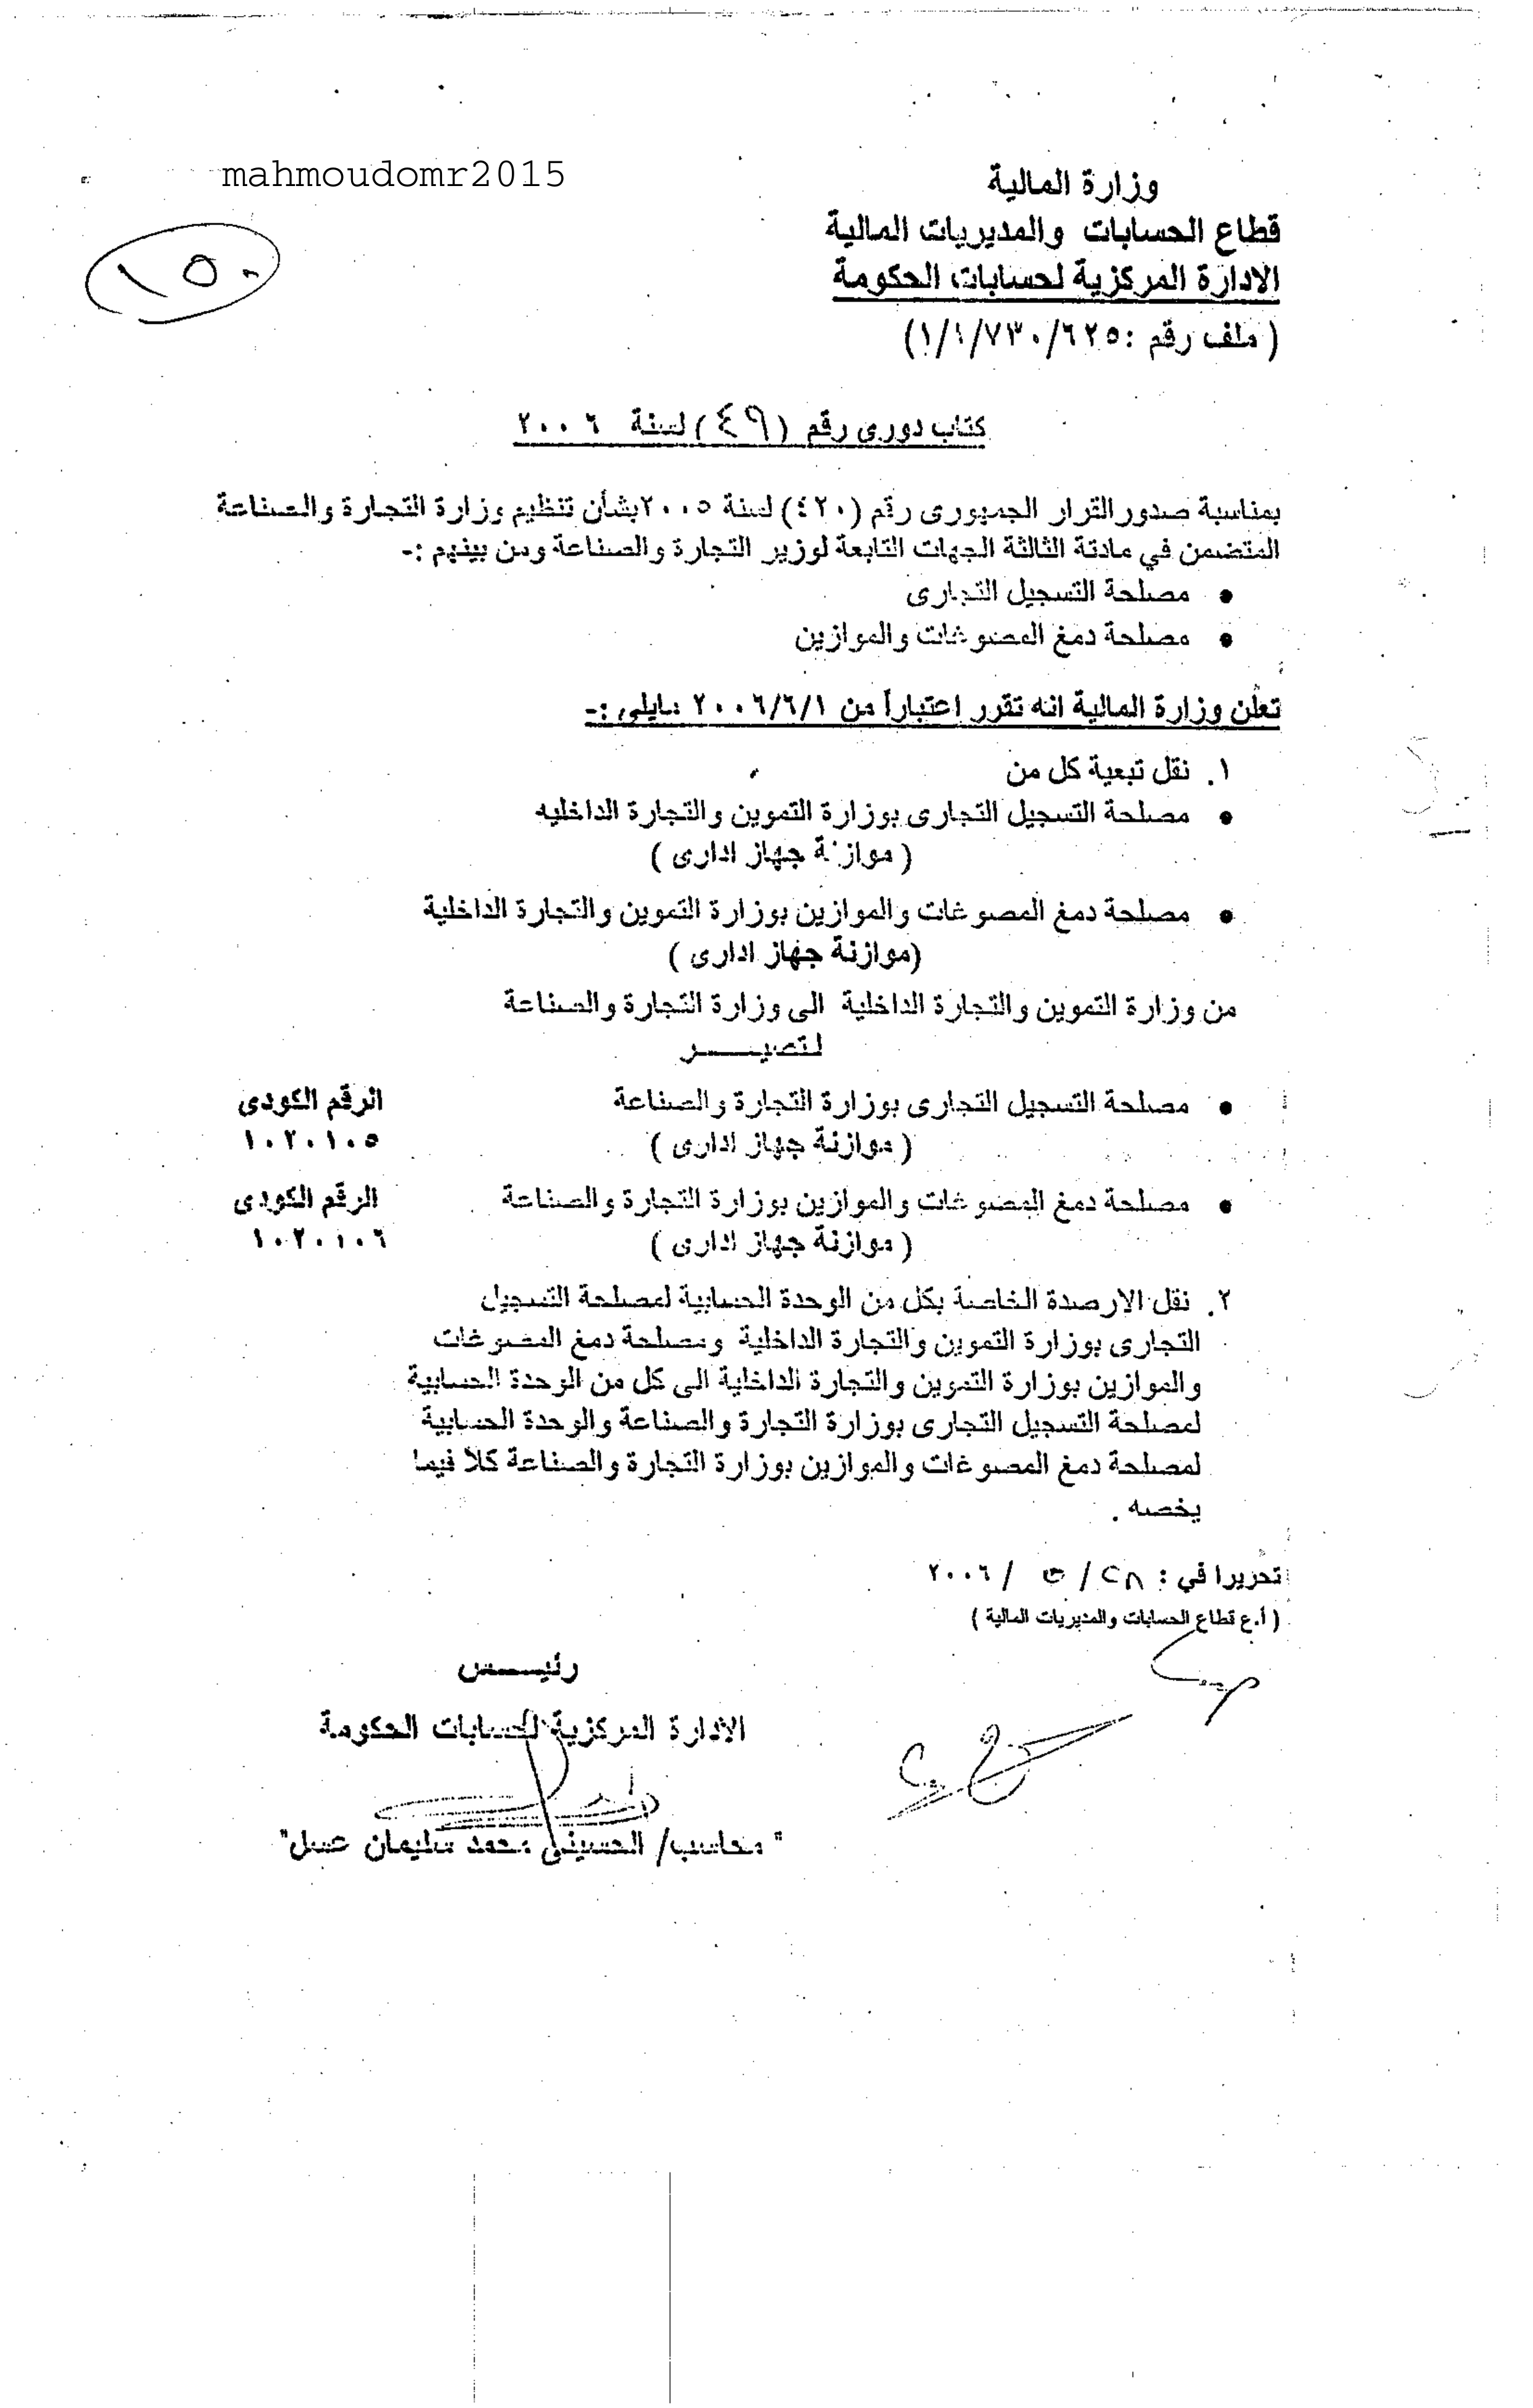 mahmoudomr2015
وزارة المالية
قطاع الحسابات والمديريات المالية
الادارة المركزية لحسابات الحكومة
( ملف رقم : ٦٢٥/٧٣٠/١/١)
١٥٠
كتاب دورى رقم (٤٩) لسنة ٢٠٠٦
بمناسبة صدور القرار الجمهورى رقم (٤٢٠) لسنة ٢٠٠٥ بشأن تنظيم وزارة التجارة والصناعة
المتضمن في مادتة الثالثة الجهات التابعة لوزير التجارة والصناعة ومن بينهم :-
• مصلحة التسجيل التجارى
• مصلحة دمغ المصوغات والموازين
تعلن وزارة المالية انه تقرر اعتباراً من ٢٠٠٦/٦/١ مايلى :-
١. نقل تبعية كل من
• مصلحة التسجيل التجارى بوزارة التموين والتجارة الداخليه
( موازنة جهاز ادارى )
• مصلحة دمغ المصوغات والموازين بوزارة التموين والتجارة الداخلية
(موازنة جهاز ادارى )
من وزارة التموين والتجارة الداخلية الى وزارة التجارة والصناعة
لتصيــــر
• مصلحة التسجيل التجارى بوزارة التجارة والصناعة الرقم الكودى
( موازنة جهاز ادارى ) ١٠٢٠١٠٥
• مصلحة دمغ المصوغات والموازين بوزارة التجارة والصناعة الرقم الكودى
( موازنة جهاز ادارى ) ١٠٢٠١٠٦
٢. نقل الارصدة الخاصة بكل من الوحدة الحسابية لمصلحة التسجيل
التجارى بوزارة التموين والتجارة الداخلية ومصلحة دمغ المصوغات
والموازين بوزارة التموين والتجارة الداخلية الى كل من الوحدة الحسابية
لمصلحة التسجيل التجارى بوزارة التجارة والصناعة والوحدة الحسابية
لمصلحة دمغ المصوغات والموازين بوزارة التجارة والصناعة كلا فيما
يخصه .
تحريرا في : ٢٨ / ٥ / ٢٠٠٦
( أ.ع قطاع الحسابات والمديريات المالية )
رئيــــس
الادارة المركزية لحسابات الحكومة
" محاسب/ الحسينى محمد سليمان عسل"